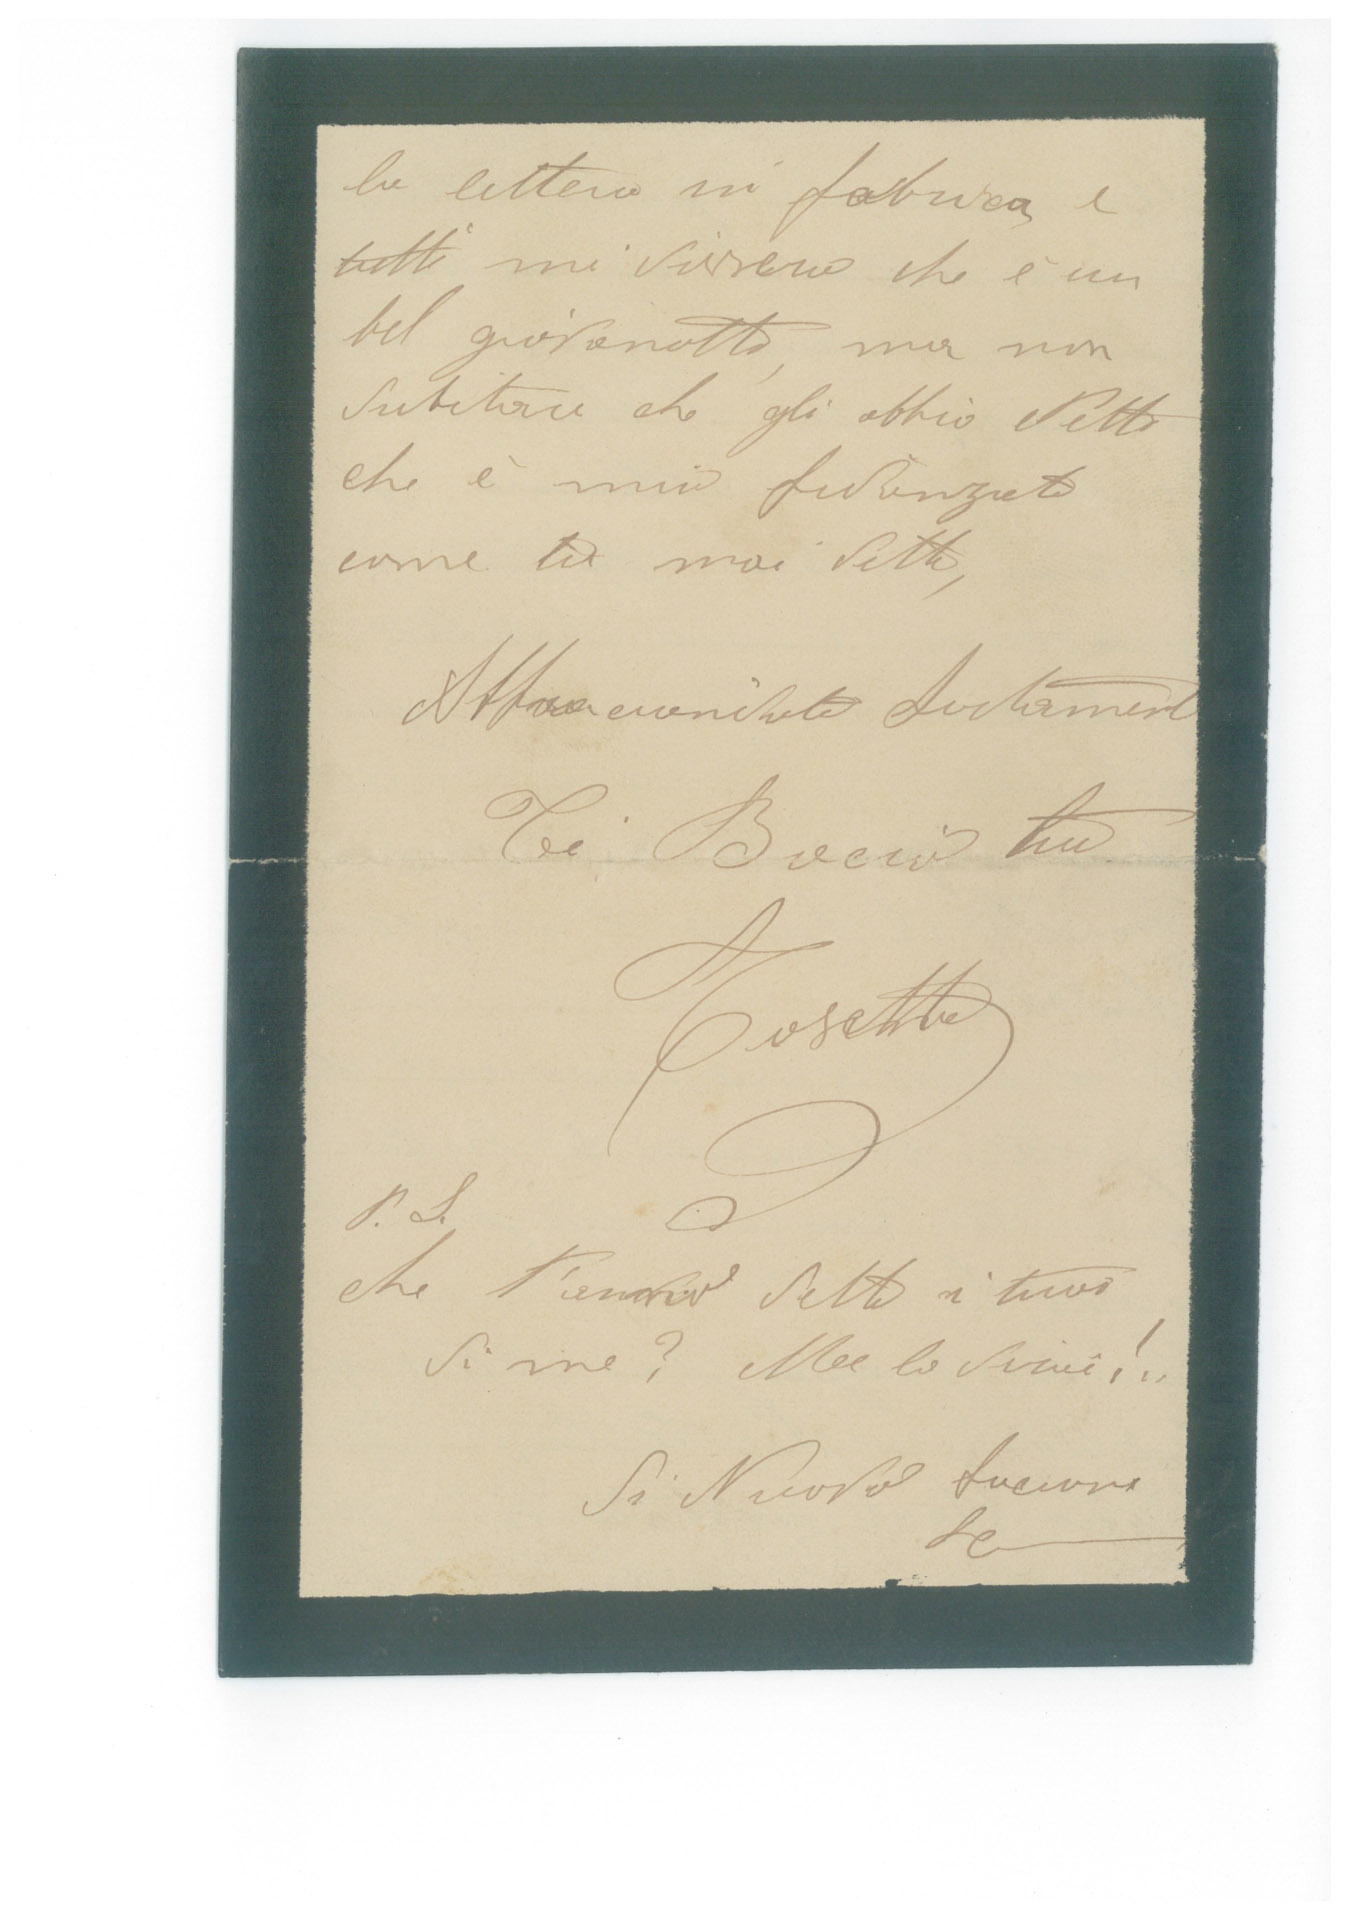 la lettera in fabrica, e
tutti mi dissero che è un
bel giovanotto, ma non
dubitare che gli abbio detto
che è mio fidanzato
come tu mai detto,
Abbraciandoti fortament
Ti Bacio tua
Tosetta
P. S.
che detto i tuoi
di me? Me lo dirai!..
Di Nuovo bacioni